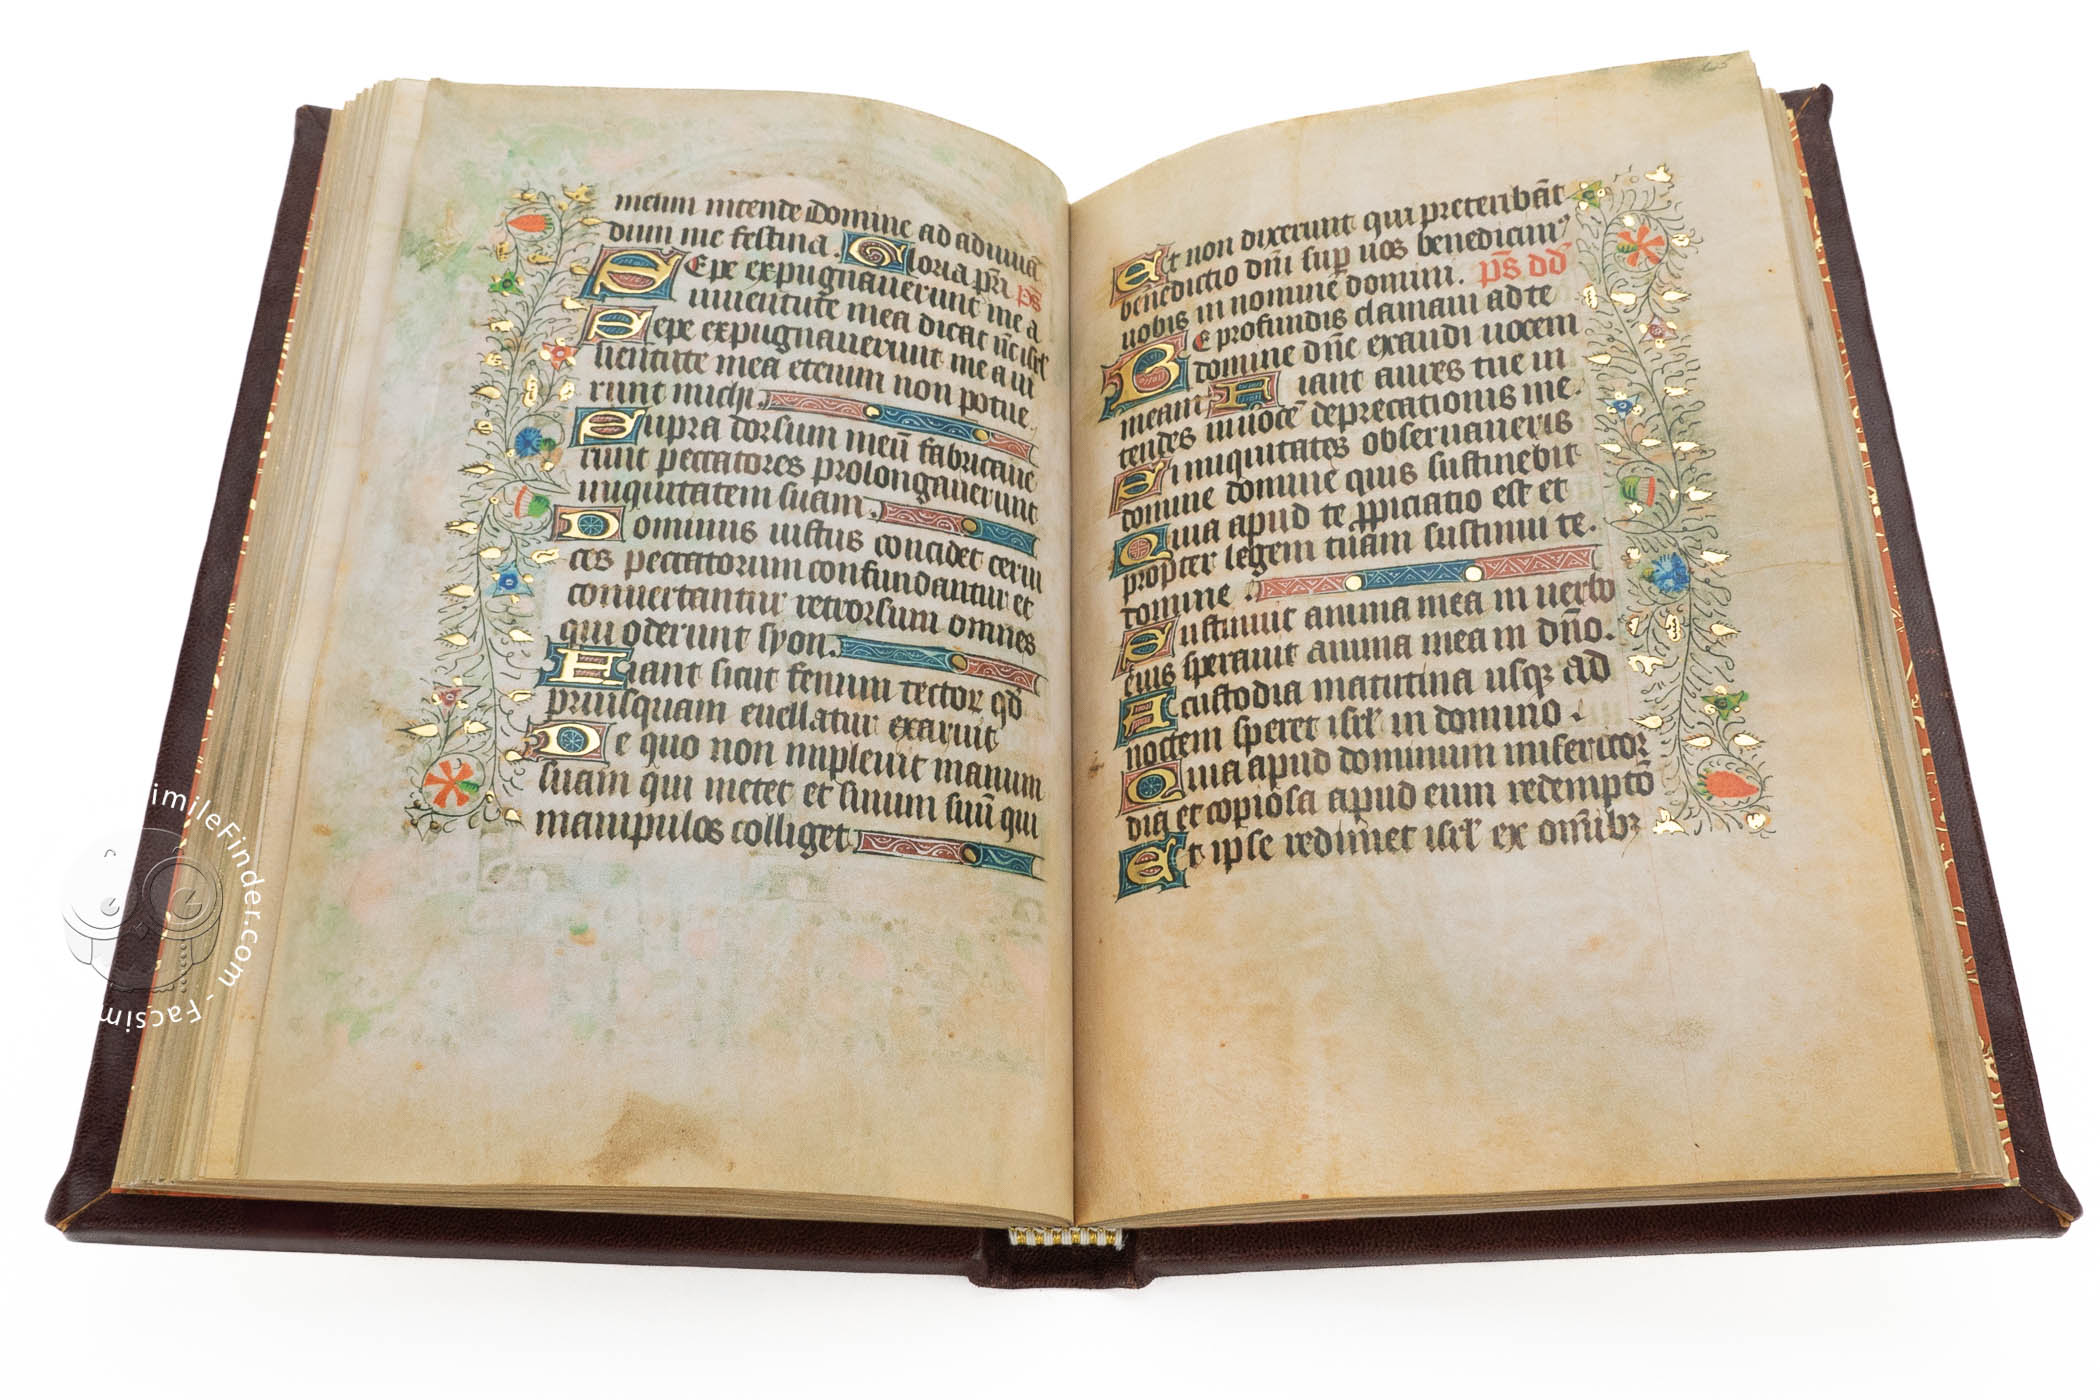 meum intende Domine ad adiuuā
dum me festina. Gloria pr̄i ps̄
Sepe expugnauerunt me a
iuuentute mea dicat nūc isrl̄
Sepe expugnauerunt me a iu
uentute mea etenim non potue
runt michi.
Supra dorsum meū fabricaue
runt peccatores prolongauerunt
iniquitatem suam.
Dominus iustus concidet ceruı
ces peccatorum confundantur et
conuertantur retrorsum omnes
qui oderunt syon.
Fiant sicut fenum tector qd̄
priusquam euellatur exaruit
De quo non impleuit manum
suam qui metet et sinum suū qui
manipulos colliget
Et non dixerunt qui preteribāt
benedictio dn̄i sup̱ uos benediximꝰ
uobis in nomine domini. ps̄ dd̄
De profundis clamaui ad te
domine dn̄e exaudi uocem
meam Fiant aures tue in
tendes in uocē deprecationis me.
Si iniquitates obseruaueris
domine domine quis sustinebit
Quia apud te ꝓpiciatio est et
propter legem tuam sustinui te.
domine.
Sustinuit anima mea in uerbo
eius sperauit anima mea in dn̄o.
A custodia matutina usqꝫ ad
noctem speret isrl̄ in domino.
Quia apud dominum misericor
dia et copiosa apud eum redemptō
Et ipse redimet isrl̄ ex om̄ibꝫ
FacsimileFinder.com - Facsim